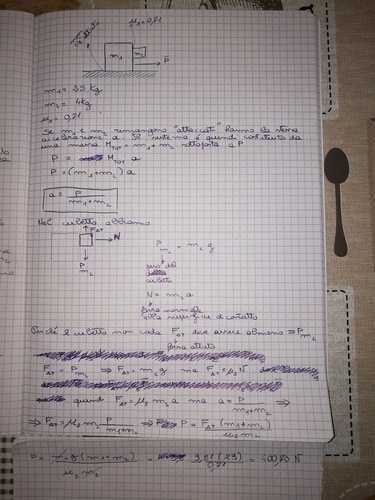 μs = 0,71
m1
m2
P
m1 = 25 kg
m2 = 4 kg
μs = 0,71
Se m1 e m2 rimangono "attaccati" hanno la stessa
accelerazione a. Il sistema è quindi costituito da
una massa MTOT = m1 + m2 sottoposta a P
P = MTOT a
P = (m1 + m2) a
a = P / (m1 + m2)
Nel cubetto abbiamo
FAT
N
Pm2
Pm2 = m2 g
peso del
cubetto
N = m2 a
forza normale
alla superficie di contatto
Perché il cubetto non cada FAT deve essere almeno = Pm2
forza attrito
FAT = Pm2 ⇒ FAT = m2 g ma FAT = μs N
quindi FAT = μs m2 a ma a = P / (m1 + m2) ⇒
⇒ FAT = μs m2 P / (m1 + m2) ⇒ P = FAT (m1 + m2) / (μs m2)
P = m2 g (m1 + m2) / (μs m2) = 9,81 (29) / 0,71 = 400,70 N